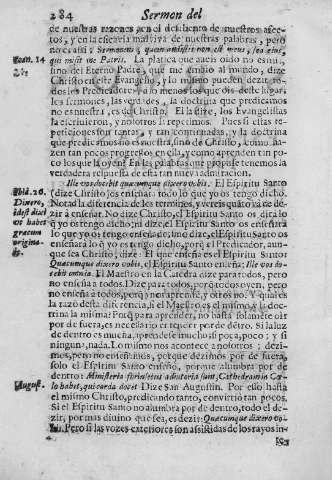 284 Sermon del
de nuestras razones ,en el desaliento de nuestros afec-
tos, y en la escasèz massiva de nuestras palabras, pero
no es assi : Sermonem , quem audistis non est meus, sed eius,
Ioan. 14 qui misit me Patris. La platica que aueis oido no es mia,
sino del Eterno Padre, que me embio al mundo, dize
Christo en este Euangelio, y lo mismo pueden dezir to-
dos los Predicadores. Alo menos lo que dis desde lugar,
los sermones, las verdades , la doctrina que predicamos
no es nuestra, es de Christo. El la dixo, los Euangelistas
la escriuieron, y nosotros la repetimos. Pues si estas re-
peticiones son tantas , y tan continuadas, y la doctrina
que predicamos no es nuestra, sino de Christo , como ha-
zen tan pocos progressos en ella, y como aprenden tan po-
co los que la oyen? En las palabras que propuse tenemos la
verdadera respuesta de esta tan nueua admiracion.
Ille vos docebit quæcumque dixero vobis. El Espiritu Santo
Ibid. 26. (dize Christo) os enseñarà todo lo que yo os tengo dicho.
Dixero, Notad la diferencia de los terminos, y vereis quãto và de de-
idest dixi zir à enseñar. No dize Christo, el Espiritu Santo os dirà lo
vt habet q̃ yo os tengo dicho; ni dize: el Espiritu Santo os enseñarà
græcum lo que yo os tengo enseñado; sino dize; el Espiritu Santo os
origina- enseñarà lo q̃ yo os tengo dicho, porq̃ el Predicador, aun-
le. que sea Christo, dize : El que enseña es el Espiritu Santo:
Quæcumque dixero vobis, el Espiritu Santo enseña; Ille vos do-
cebit omnia. El Maestro en la Catedra dize para todos, pero
no enseña à todos. Dize para todos, porq̃ todos oyen, pero
no enseña à todos, porq̃ vnos aprenden, y otros no. Y qual es
la razõ desta diuersidad, si el Maestro es el mismo, y la doc-
trina la misma? Porq̃ para aprender, no basta solamẽte oir
por de fuera, es necessario entender por de dẽtro. Si la luz
de dentro es mucha, aprendese mucho; si poca, poco ; y si
ninguna, nada. Lo mismo nos acontece à nosotros ; dezi-
mos, pero no enseñamos, porque dezimos por de fuera,
solo el Espiritu Santo enseña, porque alumbra por de
dentro : Ministeria forinsecus adiutoria sunt, Cathedram in Cæ-
August. lo habet, qui corda docet Dize San Augustin. Por esso hasta
el mismo Christo, predicando tanto, conuirtiò tan pocos.
Si el Espiritu Santo no alumbra por de dentro, todo el de-
zir, por mas diuino que sea, es dezir: Quæcumque dixero vo-
bis. Pero si las vozes exteriores son assistidas de los rayos in-